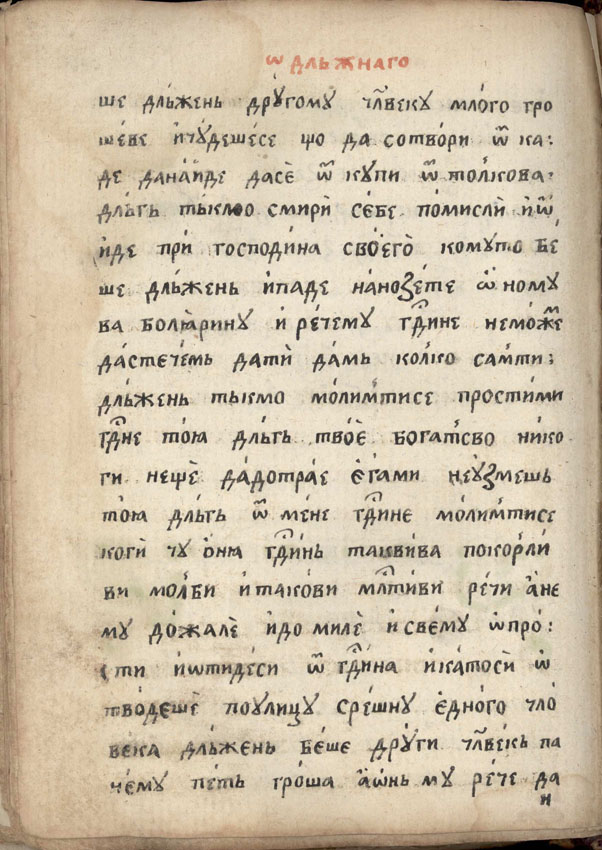 ѡ҇ длъжнаго
ше длъжень другому чл҃веку млого гро
шеве и чудешесе що да сотвори ѿ ка:
де да найде дасе ѿ купи ѿ толкова
длъгь тькмо смири себе помисли и ѿ
иде при господина своего комуто бе
ше длъжень и паде на нозете ѡ ному
ва болꙗрину и рече му гдⷭ҇ине не може
да стечемь дати дамь колко сам ти
длъжень тькмо молим ти се прости ми
гдⷭ҇не тою длъгь твое богатсво нико
ги неще да до трае ега ми не узмешь
тою длъгь ѿ мене гдⷭ҇ине молим ти се
коги чу ѡнꙗ гдⷭ҇инь таквива покорли
ви молби и такови млⷭ҇тиви речи а не
му дожале и домиле и свему ѡпро:
сти и ѡтидеси ѿ гдⷭ҇ина и катоси ѡ
тводеше по улицу срешну едного чло
века длъжень беше други чл҃векь па
чему петь гроша а ѡнь му рече да
и